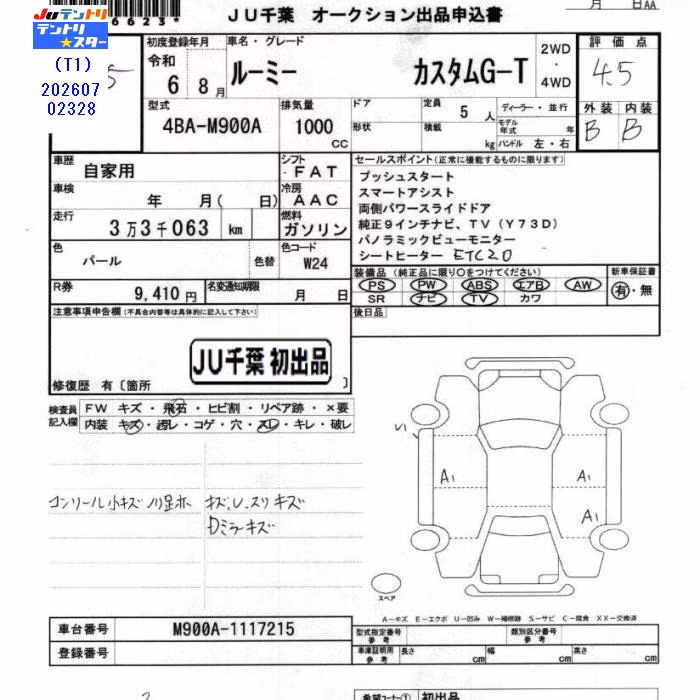 6623*
JU千葉 オークション出品申込書
月 日AA
JUテントリ
テントリ★スター
(T1)
202607
02328
初度登録年月
令和 6年 8月
車名・グレード
ルーミー カスタムG-T
2WD・4WD
評価点
4.5
外装 内装
B B
型式
4BA-M900A
排気量
1000 CC
ドア
形状
定員 5 人
積載 kg
ディーラー・並行
モデル年式 年
ハンドル 左・右
車歴
自家用
シフト
FAT
車検
年 月( 日)
冷房
AAC
走行
3万3千063 km
燃料
ガソリン
色
パール
色替
色コード
W24
R券
9,410円
名変通知期限
月 日
セールスポイント(正常に機能するものに限ります)
プッシュスタート
スマートアシスト
両側パワースライドドア
純正9インチナビ、TV(Y73D)
パノラミックビューモニター
シートヒーター ETC2.0
装備品(純正品に限り○をつけてください)
PS PW ABS エアB AW
SR ナビ TV カワ
新車保証書
有・無
後日品
注意事項申告欄(不具合内容等は具体的に記入して下さい)
JU千葉 初出品
修復歴 有〔箇所 〕
検査員記入欄
FW キズ・飛石・ヒビ割・リペア跡・×要
内装 キズ・汚レ・コゲ・穴・スレ・キレ・破レ
コンソール小キズ
キズ、U、スリキズ
Dミラーキズ
A1
A1
A1
スペア
A－キズ E－エクボ U－凹み W－補修跡 S－サビ C－腐食 XX－交換済
車台番号
M900A-1117215
登録番号
型式指定番号 参考
類別区分番号 参考
車庫証明用 参考
長さ cm
幅 cm
高さ cm
希望コーナー① 初出品